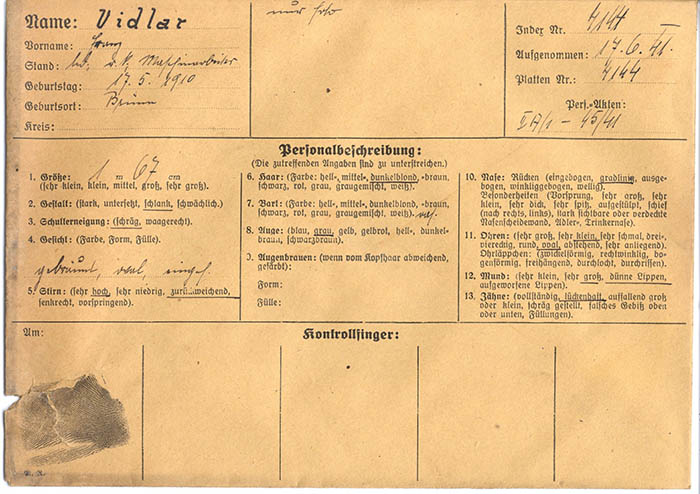 Name: Vidlar
Vorname: Franz
Stand: led., r. k. Maschinarbeiter
Geburtstag: 17. 5. 1910
Geburtsort: Brünn
Kreis:
nur Foto
Index Nr. 4144
Aufgenommen: 17. 6. 41.
Platten Nr.: 4144
Pers.-Akten:
45/41
Personalbeschreibung:
(Die zutreffenden Angaben sind zu unterstreichen.)
1. Größe: 1 m 67 cm
(sehr klein, klein, mittel, groß, sehr groß).
2. Gestalt: (stark, untersetzt, schlank, schwächlich).
3. Schulterneigung: (schräg, waagerecht).
4. Gesicht: (Farbe, Form, Fülle).
gebräunt, oval, eingef.
5. Stirn: (sehr hoch, sehr niedrig, zurückweichend,
senkrecht, vorspringend).
6. Haar: (Farbe: hell-, mittel-, dunkelblond, -braun,
schwarz, rot, grau, graugemischt, weiß).
7. Bart: (Farbe: hell-, mittel-, dunkelblond, -braun,
schwarz, rot, grau, graugemischt, weiß). ras.
8. Auge: (blau, grau, gelb, gelbrot, hell-, dunkel-
braun, schwarzbraun).
9. Augenbrauen: (wenn vom Kopfhaar abweichend,
gefärbt):
Form:
Fülle:
10. Nase: Rücken (eingebogen, gradlinig, ausge-
bogen, winkliggebogen, wellig).
Besonderheiten (Vorsprung, sehr groß, sehr
klein, sehr dick, sehr spitz, aufgestülpt, schief
(nach rechts, links), stark sichtbare oder verdeckte
Nasenscheidewand, Adler-, Trinkernase).
11. Ohren: (sehr groß, sehr klein, sehr schmal, drei-,
viereckig, rund, oval, abstehend, sehr anliegend).
Ohrläppchen: (zwickelförmig, rechtwinklig, bo-
genförmig, freihängend, durchlocht, durchrissen).
12. Mund: (sehr klein, sehr groß, dünne Lippen,
aufgeworfene Lippen).
13. Zähne: (vollständig, lückenhaft, auffallend groß
oder klein, schräg gestellt, falsches Gebiß oben
oder unten, Füllungen).
Am:
Kontrollfinger: